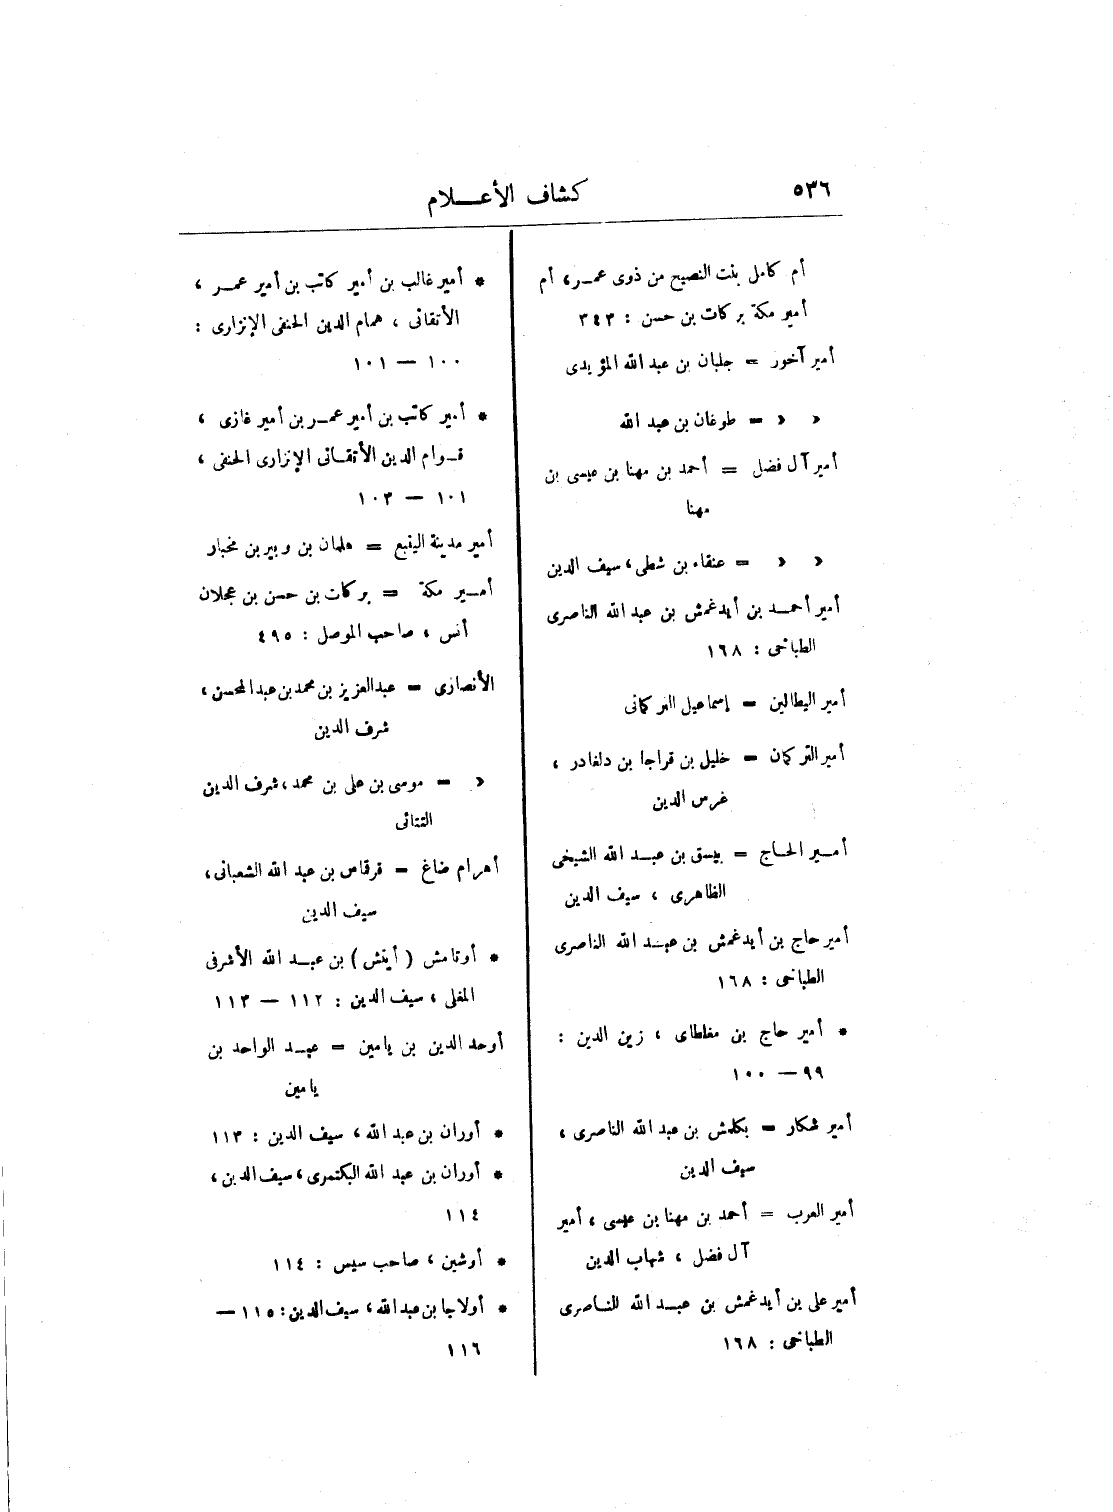 ٥٣٦
كشاف الأعـــلام
أم كامل بنت النصيح من ذوى عمـر، أم
أمير مكة بركات بن حسن : ٣٤٣
أمير آخور = جلبان بن عبد الله المؤيدى
» » = طوغان بن عبد الله
أمير آل فضل = أحمد بن مهنا بن عيسى بن
مهنا
» » = عنقاء بن شطى، سيف الدين
أمير أحمـد بن أيدغمش بن عبد الله الناصرى
الطباخى : ١٦٨
أمير البطالين = إسماعيل التركمانى
أمير التركمان = خليل بن قراجا بن دلغادر ،
غرس الدين
أمـير الحـاج = بيسق بن عبـد الله الشيخى
الظاهرى ، سيف الدين
أمير حاج بن أيدغمش بن عبـد الله الناصرى
الطباخى : ١٦٨
* أمير حاج بن مغلطاى ، زين الدين :
٩٩ — ١٠٠
أمير شكار = بكلمش بن عبد الله الناصرى ،
سيف الدين
أمير العرب = أحمد بن مهنا بن عيسى ، أمير
آل فضل ، شهاب الدين
أمير على بن أيدغمش بن عبـد الله الناصرى
الطباخى : ١٦٨
* أمير غالب بن أمير كاتب بن أمير عمـر ،
الأتقانى ، همام الدين الحنفى الإتزارى :
١٠٠ — ١٠١
* أمير كاتب بن أمير عمـر بن أمير غازى ،
قـوام الدين الأتقـانى الإتزارى الحنفى ،
١٠١ — ١٠٣
أمير مدينة الينبع = هلمان بن وبير بن مخبار
أمـير مكة = بركات بن حسن بن عجلان
أنس ، صاحب الموصل : ٤٩٥
الأنصارى = عبدالعزيز بن محمد بن عبدالمحسن،
شرف الدين
» = موسى بن على بن محمد، شرف الدين
التتائى
أهرام ضاغ = قرقماس بن عبد الله الشعبانى،
سيف الدين
* أوتامش ( أيتش ) بن عبـد الله الأشرفى
المغلى ، سيف الدين : ١١٢ — ١١٣
أوحد الدين بن يامين = عبـد الواحد بن
يامين
* أوران بن عبد الله ، سيف الدين : ١١٣
* أوران بن عبد الله البكتمرى، سيف الدين ،
١١٤
* أوشين ، صاحب سيس : ١١٤
* أولاجا بن عبدالله، سيف الدين: ١١٥ —
١١٦